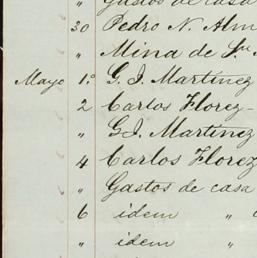 " Gastos de casa
30 Pedro N. Alm
" Mina de Sn
Mayo 1.º G. J. Martínez
2 Carlos Florez-
" G. J. Martínez
4 Carlos Florez
" Gastos de casa
6 idem "
" idem "